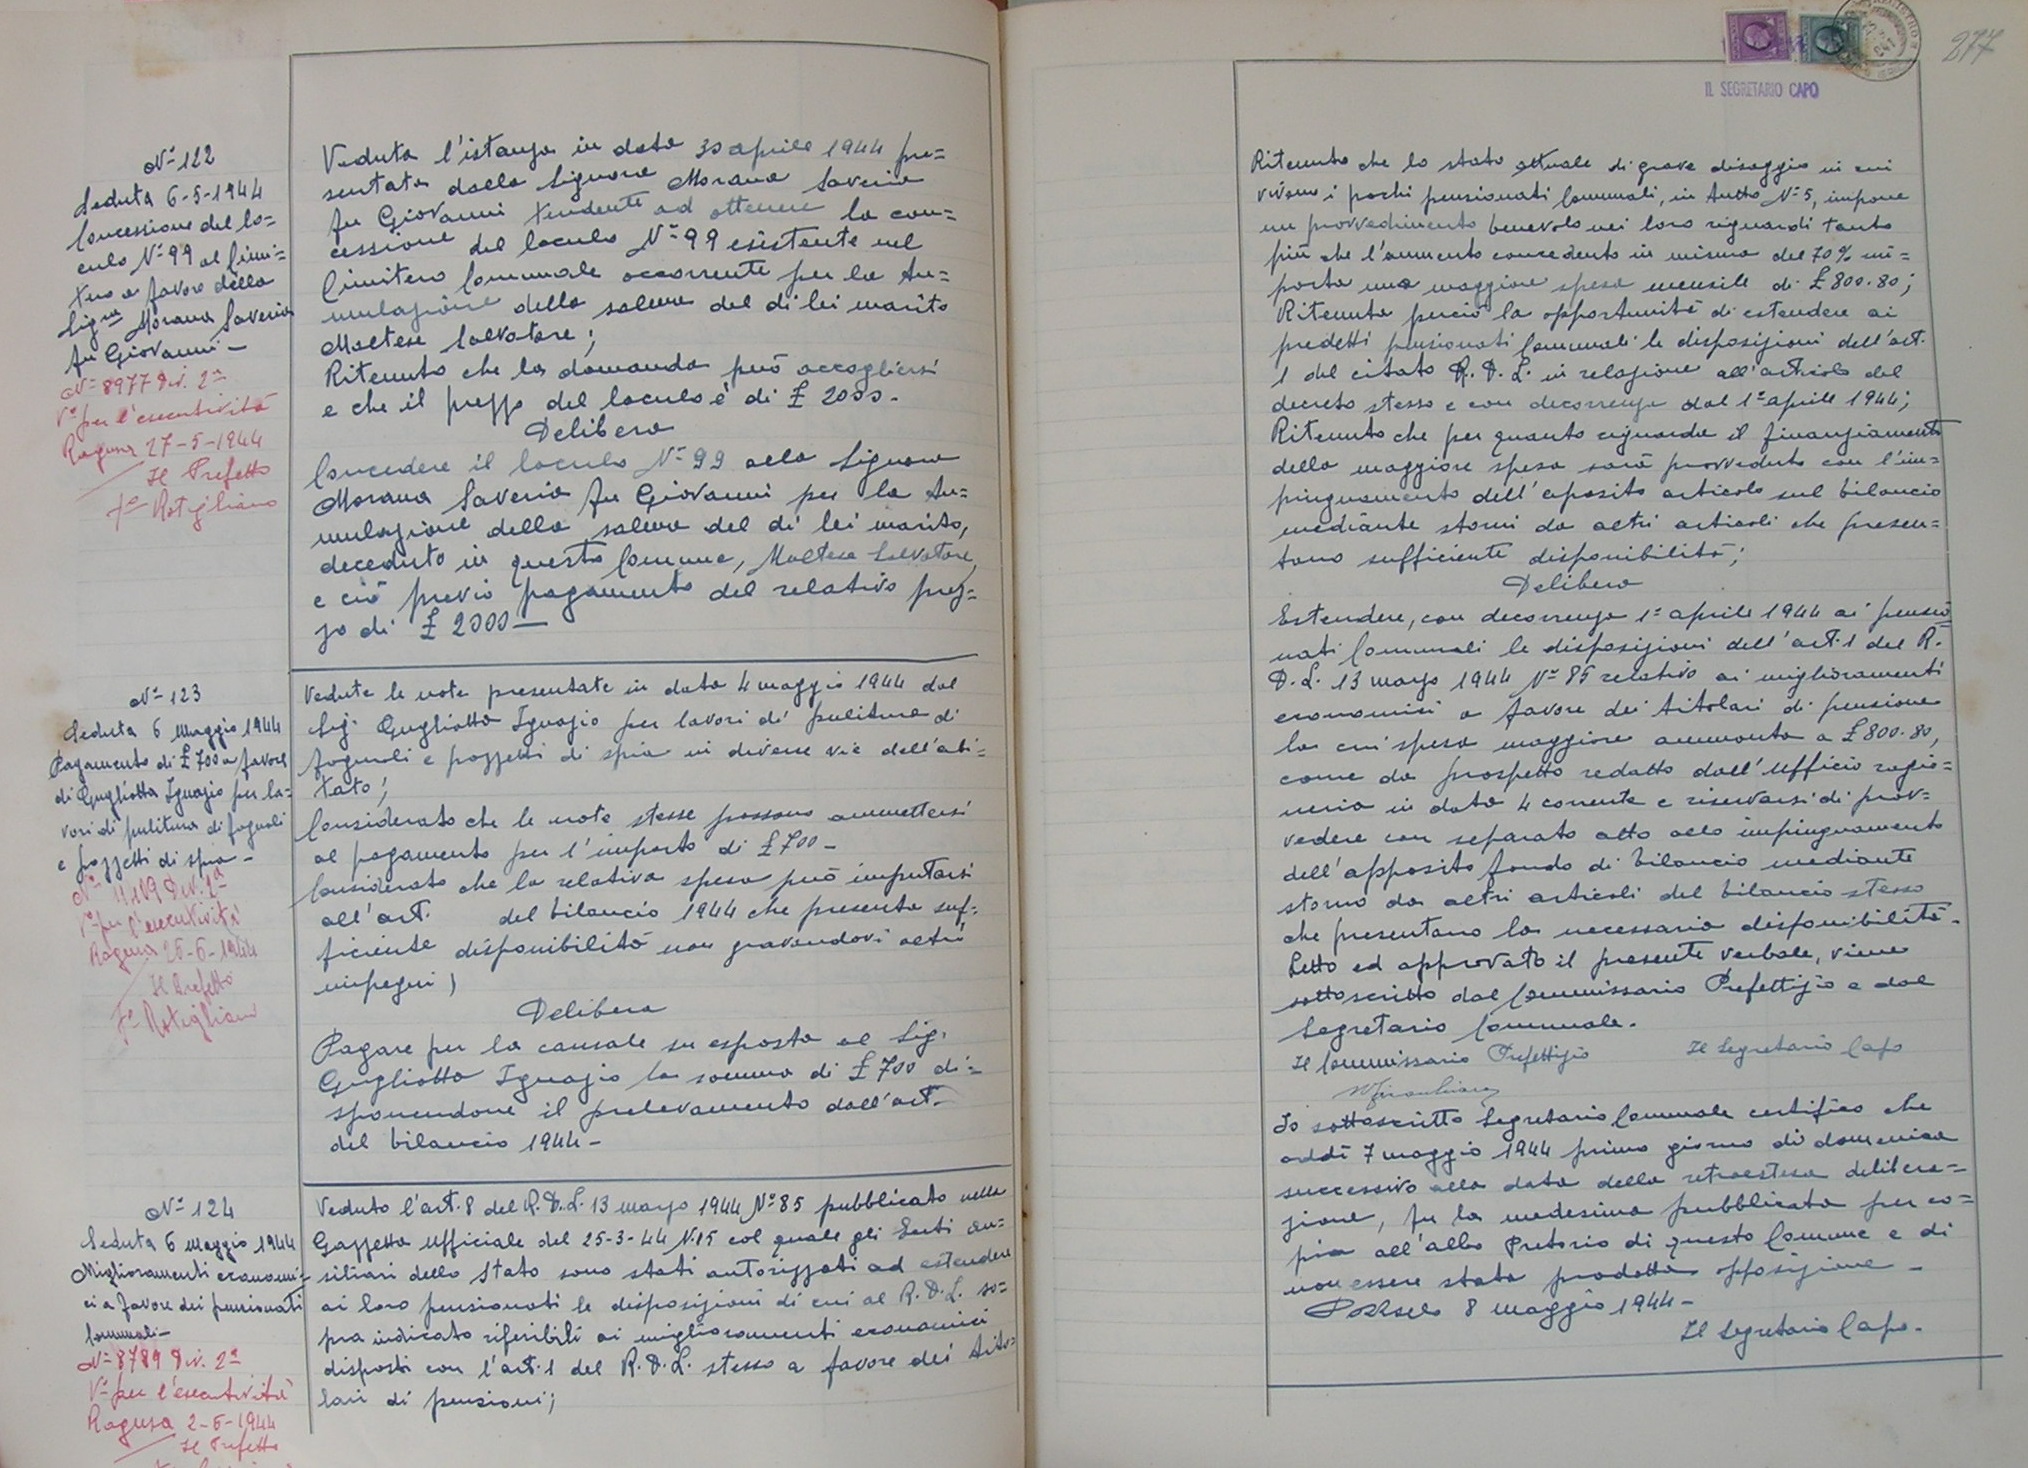 N° 122
Seduta 6-5-1944
Concessione del lo=
culo N° 99 al Cimi=
tero a favore della
Sig.ra Morana Saveria
fu Giovanni -
N° 8977 Div. 2a
V° per l'esecutività
Ragusa 27-5-1944
Il Prefetto
Veduta l'istanza in data 30 aprile 1944 pre=
sentata dalla Signora Morana Saveria
fu Giovanni tendente ad ottenere la con=
cessione del loculo N° 99 esistente nel
Cimitero Comunale occorrente per la tu=
mulazione della salma del di lei marito
Maltese Salvatore;
Ritenuto che la domanda può accogliersi
e che il prezzo del loculo è di £ 2000.
Delibera
Concedere il loculo N° 99 alla Signora
Morana Saveria fu Giovanni per la tu=
mulazione della salma del di lei marito,
deceduto in questo Comune, Maltese Salvatore,
e ciò previo pagamento del relativo prez=
zo di £ 2000 —
N° 123
Seduta 6 Maggio 1944
Pagamento di £ 700 a favore
di Gugliotta Ignazio per la=
vori di pulitura di fognoli
e pozzetti di spia -
Div. 2a
V° per l'esecutività
Ragusa
Il Prefetto
Vedute le note presentate in data 4 maggio 1944 dal
Sig. Gugliotta Ignazio per lavori di pulitura di
fognoli e pozzetti di spia in diverse vie dell'abi=
tato;
Considerato che le note stesse possono ammettersi
al pagamento per l'importo di £ 700 -
Considerato che la relativa spesa può imputarsi
all'art. del bilancio 1944 che presenta suf=
ficiente disponibilità non gravandovi altri
impegni;
Delibera
Pagare per la causale su esposta al Sig.
Gugliotta Ignazio la somma di £ 700 di=
sponendone il prelevamento dall'art.
del bilancio 1944 -
N° 124
Seduta 6 Maggio 1944
Miglioramenti economi=
ci a favore dei pensionati
Comunali -
N° 8789 Div. 2a
V° per l'esecutività
Ragusa 2-6-1944
Il Prefetto
Veduto l'art. 8 del R.D.L. 13 marzo 1944 N° 85 pubblicato nella
Gazzetta Ufficiale del 25-3-44 N. 15 col quale gli Enti au=
siliari dello Stato sono stati autorizzati ad estendere
ai loro pensionati le disposizioni di cui al R.D.L. so=
pra indicato riferibili ai miglioramenti economici
disposti con l'art. 1 del R.D.L. stesso a favore dei tito=
lari di pensioni;
277
IL SEGRETARIO CAPO
Ritenuto che lo stato attuale di grave disaggio in cui
vivono i pochi pensionati Comunali, in tutto N° 5, impone
un provvedimento benevolo nei loro riguardi tanto
più che l'aumento concedento in misura del 70% im=
porta una maggiore spesa mensile di £ 800.80;
Ritenuta perciò la opportunità di estendere ai
predetti pensionati Comunali le disposizioni dell'art.
1 del citato R.D.L. in relazione all'articolo del
decreto stesso e con decorrenza dal 1° aprile 1944;
Ritenuto che per quanto riguarda il finanziamento
della maggiore spesa sarà provveduto con l'im=
pinguamento dell'aposito articolo sul bilancio
mediante storni da altri articoli che presen=
tano sufficiente disponibilità;
Delibera
Estendere, con decorrenza 1° aprile 1944 ai pensio
nati Comunali le disposizioni dell'art. 1 del R.
D.L. 13 marzo 1944 N° 85 relativo ai miglioramenti
economici a favore dei titolari di pensione
la cui spesa maggiore ammonta a £ 800.80,
come da prospetto redatto dall'ufficio ragio=
neria in data 4 corrente e riservarsi di prov=
vedere con separato atto allo impinguamento
dell'apposito fondo di bilancio mediante
storno da altri articoli del bilancio stesso
che presentano la necessaria disponibilità.
Letto ed approvato il presente verbale, viene
sottoscritto dal Commissario Prefettizio e dal
Segretario Comunale.
Il Commissario Prefettizio Il Segretario Capo
Io sottoscritto Segretario Comunale certifico che
addì 7 maggio 1944 primo giorno di domenica
successivo alla data della retroestesa delibera=
zione, fu la medesima pubblicata per co=
pia all'albo Pretorio di questo Comune e di
non essere stata prodotta opposizione -
8 maggio 1944 -
Il Segretario Capo.